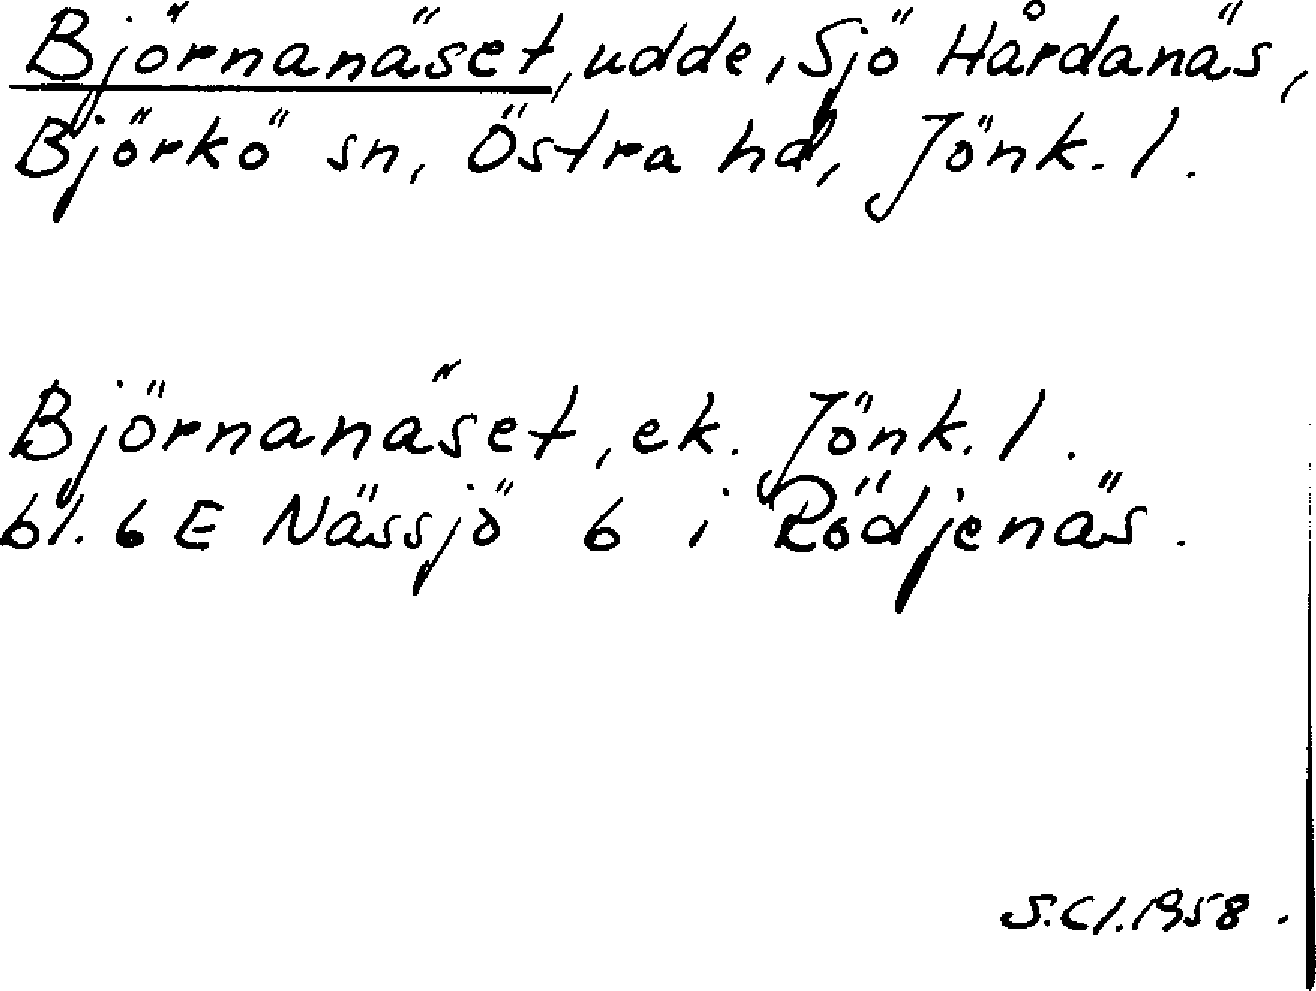 Björnanäset, udde, Sjö Hårdanäs,
Björkö sn, Östra hd, Jönk. l.
Björnanäset, ek. Jönk. l.
bl. 6 E Nässjö 6 i Rödjenäs.
S.Cl.1958.